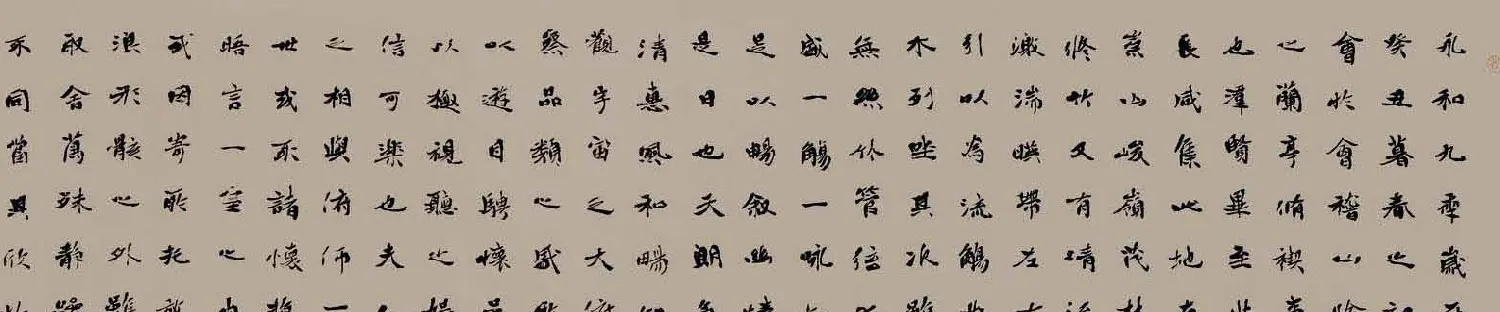 永和九年歲
癸丑暮春之
會於會稽山
之蘭亭脩禊
也羣賢畢至
長咸集此地
崇山峻嶺茂
脩竹又有清
激湍暎帶左
引以為流觴
水列坐其次
無絲竹管弦
盛一觴一詠
足以暢敘幽
是日也天朗
清惠風和暢
觀宇宙之大
察品類之盛
以遊目騁懷
以極視聽之
信可樂也夫
之相與俯仰
世或取諸懷
晤言一室之
或因寄所託
浪形骸之外
取舍萬殊靜
不同當其欣